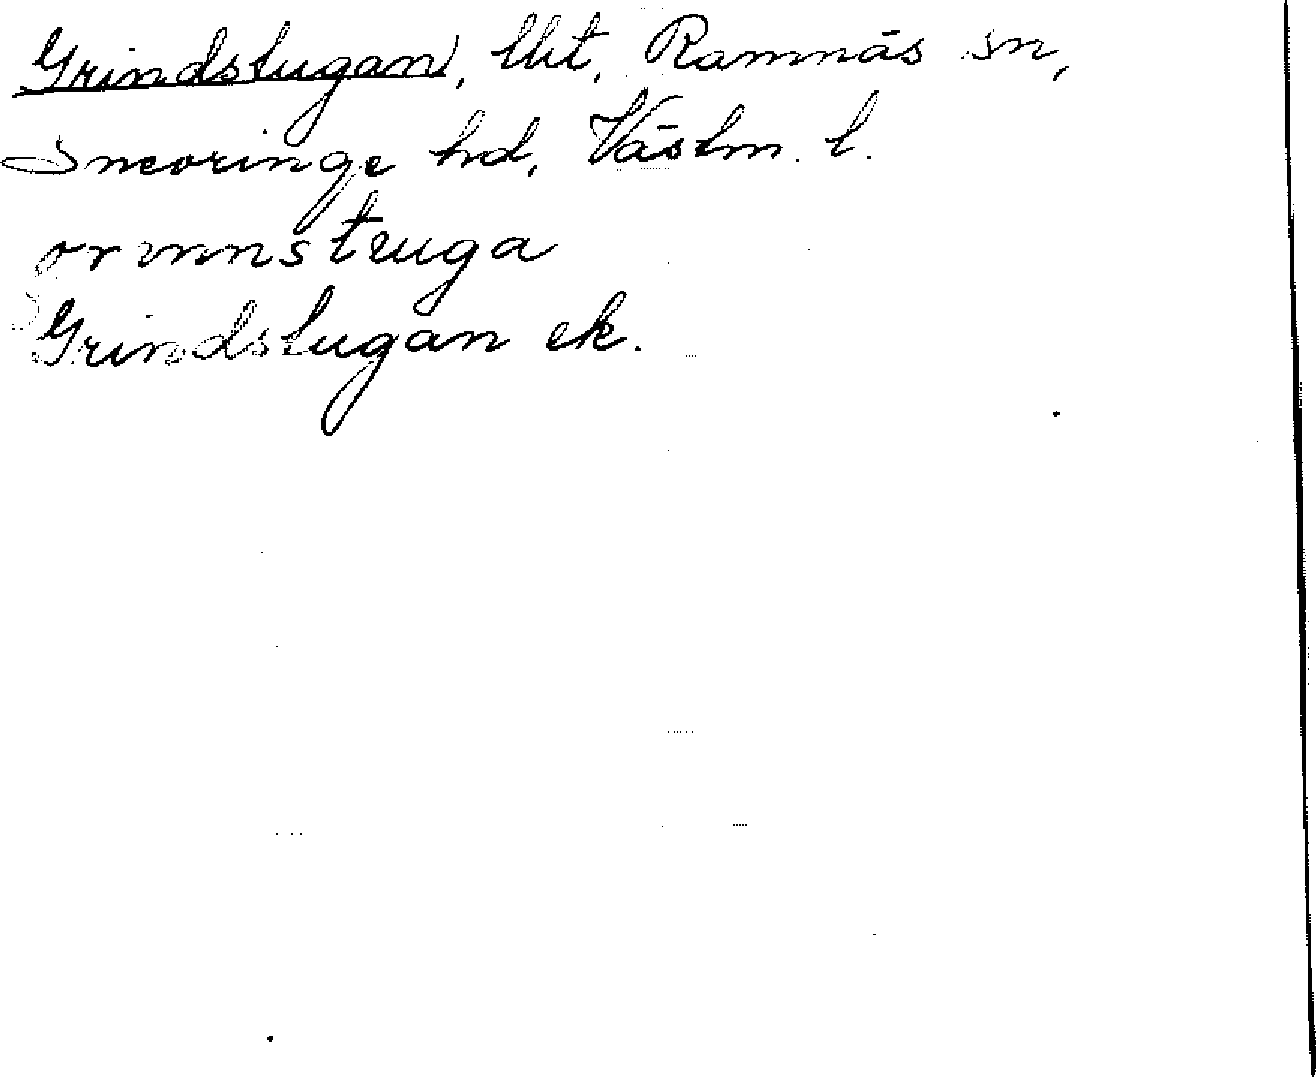 Grindstugan, lht, Ramnäs sn,
Snevringe hd, Västm. l.
Grindstugan ek.